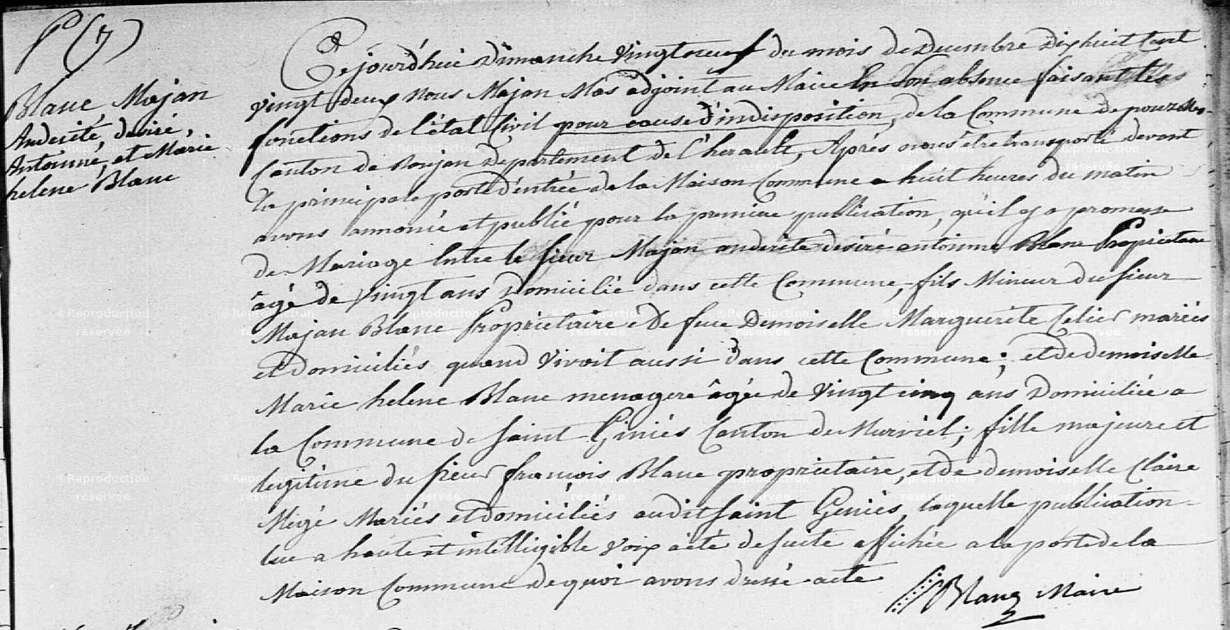 P (7)
Blanc Majan
Anderite desiré,
Antoinne, et Marie
helene Blanc
Cejourd'hui Dimanche Vingtneuf du mois de Decembre Dixhuit cent
vingt deux Nous Majan Mas adjoint au Maire En son absence faisant les
fonctions de l'état Civil pour cause d'indisposition, de la Commune de pouzolles
Canton de Roujan Département de l'herault, Aprés nous être transporté devant
la principale porte d'entrée de la Maison Commune a huit heures du matin
avons annoncé et publié pour la premiere publication, qu'il y a promesse
de Mariage Entre le sieur Majan anderite desiré antoinne Blanc Propriétaire
âgé de Vingt ans Domicilié dans cette Commune, fils Mineur du sieur
Majan Blanc Propriétaire & De feue Demoiselle Marguerite mariés
et domiciliés quand Vivoit aussi dans cette Commune; et de demoiselle
Marie helene Blanc menagere âgée de Vingt cinq ans Domiciliée a
la Commune de Saint Giniés Canton de Murviel; fille majeure et
legitime du sieur françois Blanc propriétaire, et de demoiselle Claire
Mégé Mariés et domiciliés audit Saint Geniés, laquelle publication
lue a haute et intelligible Voix a été de suite affichée a la porte de la
Maison Commune de quoi avons dressé acte
Blanc Maire
©Reproduction réservée